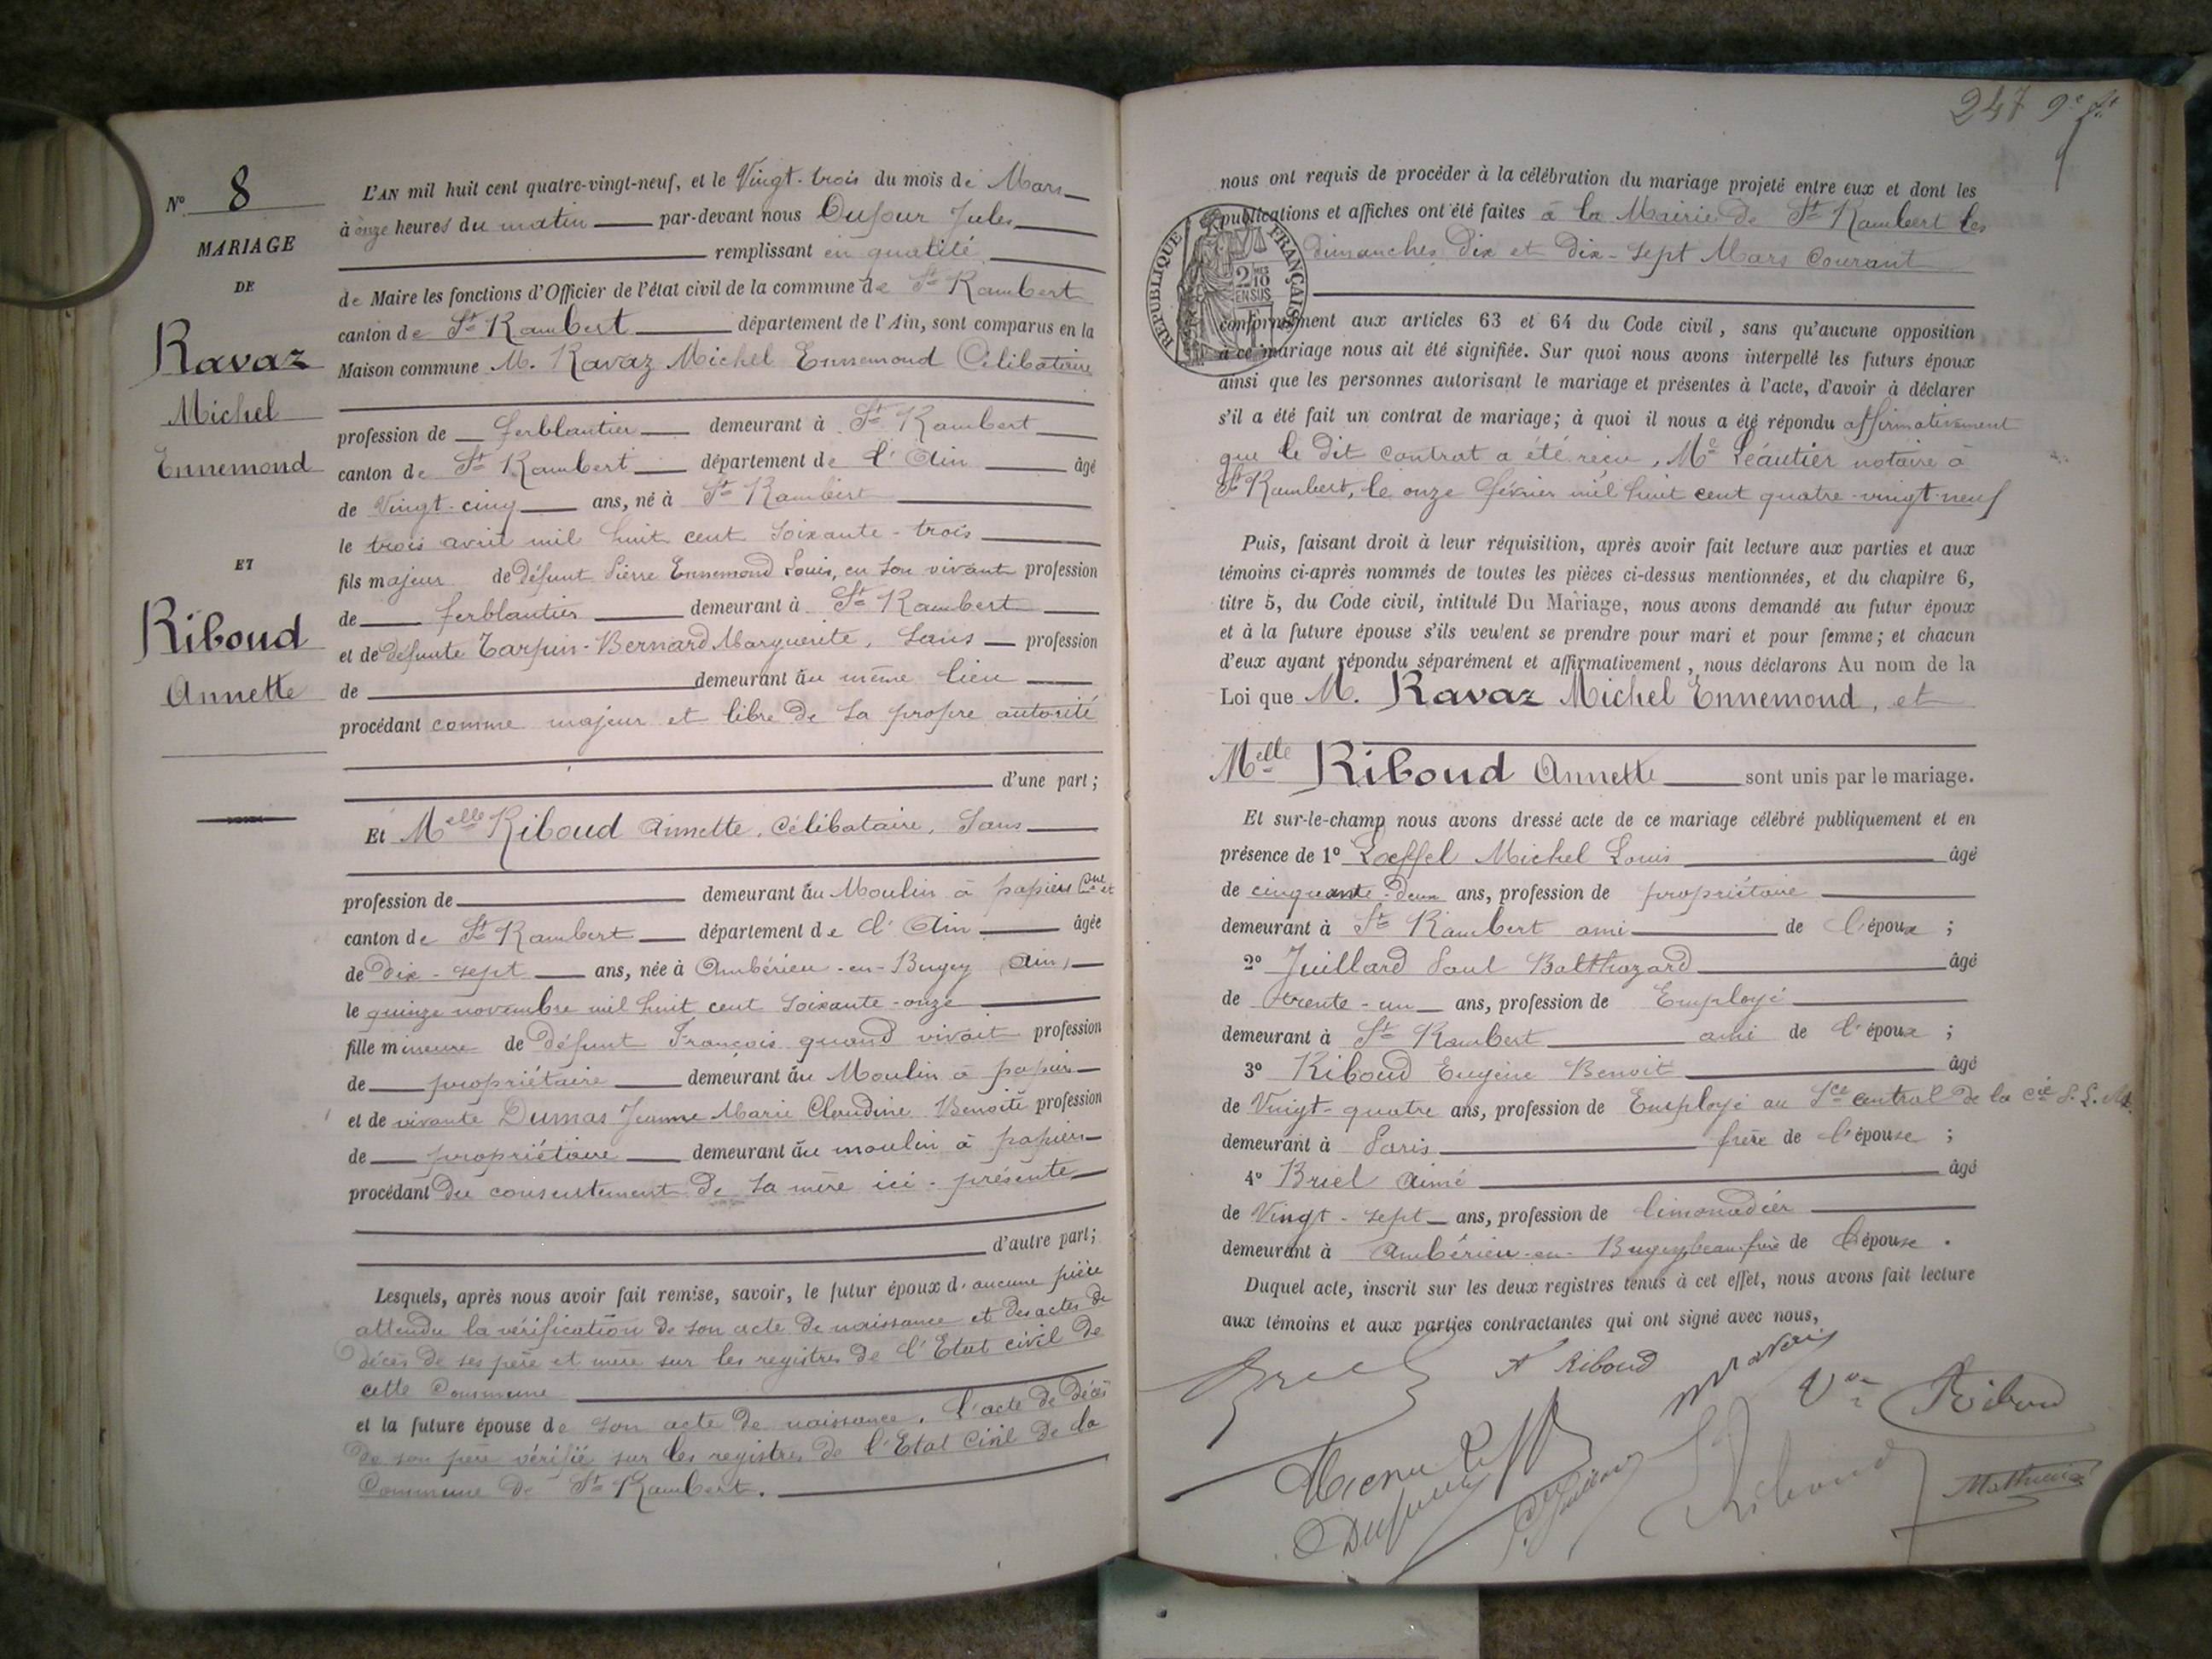 N° 8
MARIAGE
DE
Ravaz
Michel
Ennemond
ET
Riboud
Annette
L'AN mil huit cent quatre-vingt-neuf, et le Vingt-trois du mois de Mars
à onze heures du matin par-devant nous Dufour Jules
remplissant en qualité
de Maire les fonctions d'Officier de l'état civil de la commune de St Rambert
canton de St Rambert département de l'Ain, sont comparus en la
Maison commune M. Ravaz Michel Ennemond Célibataire
profession de ferblantier demeurant à St Rambert
canton de St Rambert département de l'Ain âgé
de Vingt-cinq ans, né à St Rambert
le trois avril mil huit cent soixante-trois
fils majeur de défunt Pierre Ennemond Louis, en son vivant profession
de ferblantier demeurant à St Rambert
et de défunte Tarpin-Bernard Marguerite, sans profession
de demeurant au même lieu
procédant comme majeur et libre de sa propre autorité
d'une part;
Et Melle Riboud Annette, Célibataire, Sans
profession de demeurant au Moulin à papiers Cne et
canton de St Rambert département de l'Ain âgée
de dix-sept ans, née à Ambérieu-en-Bugey (Ain)
le quinze novembre mil huit cent soixante-onze
fille mineure de défunt François quand vivait profession
de propriétaire demeurant au Moulin à papiers
et de vivante Dumas Jeanne Marie Claudine Benoite profession
de propriétaire demeurant au moulin à papiers
procédant du consentement de sa mère ici-présente
d'autre part;
Lesquels, après nous avoir fait remise, savoir, le futur époux d'aucune pièce
attendu la vérification de son acte de naissance et des actes de
décès de ses père et mère sur les registres de l'Etat civil de
cette Commune
et la future épouse de son acte de naissance, l'acte de décès
de son père vérifié sur les registres de l'Etat Civil de la
Commune de St Rambert.
247 9e
nous ont requis de procéder à la célébration du mariage projeté entre eux et dont les
publications et affiches ont été faites à la Mairie de St Rambert les
dimanches dix et dix-sept Mars courant
REPUBLIQUE FRANÇAISE
2/10 EN SUS
conformément aux articles 63 et 64 du Code civil, sans qu'aucune opposition
à ce mariage nous ait été signifiée. Sur quoi nous avons interpellé les futurs époux
ainsi que les personnes autorisant le mariage et présentes à l'acte, d'avoir à déclarer
s'il a été fait un contrat de mariage; à quoi il nous a été répondu affirmativement
que le dit contrat a été reçu, Me Léautier notaire à
St Rambert, le onze février mil huit cent quatre-vingt-neuf
Puis, faisant droit à leur réquisition, après avoir fait lecture aux parties et aux
témoins ci-après nommés de toutes les pièces ci-dessus mentionnées, et du chapitre 6,
titre 5, du Code civil, intitulé Du Mariage, nous avons demandé au futur époux
et à la future épouse s'ils veulent se prendre pour mari et pour femme; et chacun
d'eux ayant répondu séparément et affirmativement, nous déclarons Au nom de la
Loi que M. Ravaz Michel Ennemond, et
Melle Riboud Annette sont unis par le mariage.
Et sur-le-champ nous avons dressé acte de ce mariage célébré publiquement et en
présence de 1° Loeffel Michel Louis âgé
de cinquante-deux ans, profession de propriétaire
demeurant à St Rambert ami de l'époux;
2° Juillard Paul Balthazard âgé
de trente-un ans, profession de Employé
demeurant à St Rambert ami de l'époux;
3° Riboud Eugène Benoit âgé
de Vingt-quatre ans, profession de Employé au Sce central de la Cie P.L.M.
demeurant à Paris frère de l'épouse;
4° Briel Aimé âgé
de Vingt-sept ans, profession de limonadier
demeurant à Ambérieu-en-Bugey beau-frère de l'épouse.
Duquel acte, inscrit sur les deux registres tenus à cet effet, nous avons fait lecture
aux témoins et aux parties contractantes qui ont signé avec nous,
Briel A Riboud M Ravaz Vve Riboud
Dufour Riboud